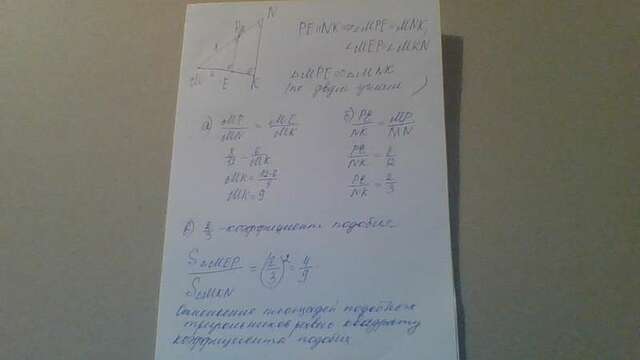 N
P
M
E
K
8
6
PE||NK => ∠MPE = ∠MNK,
∠MEP = ∠MKN
△MPE ∞ △MNK
(по двум углам)
а) MP/MN = ME/MK
8/12 = 6/MK
MK = 12·6/8
MK = 9
б) PE/NK = MP/MN
PE/NK = 8/12
PE/NK = 2/3
в) 2/3 - коэффициент подобия.
S△MEP/S△MKN = (2/3)² = 4/9
Отношение площадей подобных
треугольников равно квадрату
коэффициента подобия